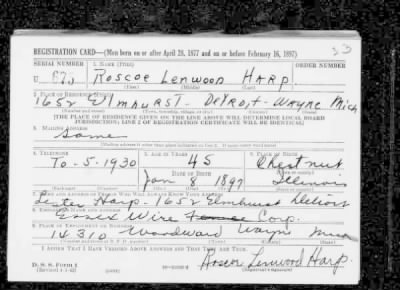 33
REGISTRATION CARD—(Men born on or after April 28, 1877 and on or before February 16, 1897)
SERIAL NUMBER 1. NAME (Print) ORDER NUMBER
U 675 Roscoe Lenwood HARP
(First) (Middle) (Last)
2. PLACE OF RESIDENCE (Print)
1652 Elmhurst - DeTroit - Wayne Mich
[THE PLACE OF RESIDENCE GIVEN ON THE LINE ABOVE WILL DETERMINE LOCAL BOARD
JURISDICTION; LINE 2 OF REGISTRATION CERTIFICATE WILL BE IDENTICAL]
3. MAILING ADDRESS
Same
4. TELEPHONE 5. AGE IN YEARS 6. PLACE OF BIRTH
To-5-1930 45 Chestnut
DATE OF BIRTH
Jan 8 1897 Illinois
7. NAME AND ADDRESS OF PERSON WHO WILL ALWAYS KNOW YOUR ADDRESS
Lester Harp - 1652 Elmhurst Detroit
8. EMPLOYER'S NAME AND ADDRESS
Essex Wire Corp.
9. PLACE OF EMPLOYMENT OR BUSINESS
14310 Woodward Wayne Mich
I AFFIRM THAT I HAVE VERIFIED ABOVE ANSWERS AND THAT THEY ARE TRUE.
D. S. S. Form 1
(Revised 4-1-42)
Roscoe Lenwood Harp.
(Registrant's signature)